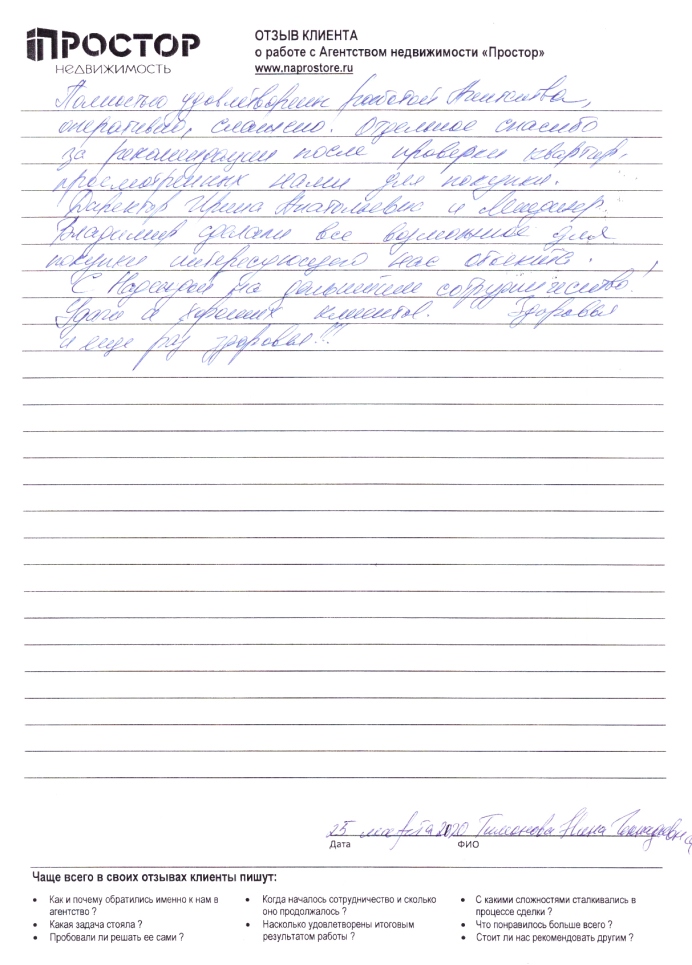 ПРОСТОР
НЕДВИЖИМОСТЬ
ОТЗЫВ КЛИЕНТА
о работе с Агентством недвижимости «Простор»
www.naprostore.ru
Полностью удовлетворены работой Агентства,
оперативно, слаженно. Отдельное спасибо
за рекомендации после проверки квартир,
просмотренных нами для покупки.
Директор Ирина Анатольевна и Менеджер
Владимир сделали все возможное для
покупки интересующего нас объекта.
С Надеждой на дальнейшее сотрудничество!
Удачи и хороших клиентов. Здоровья
и еще раз здоровья!!!
25 марта 2020 Тимонова Нина Геннадьевна
Дата ФИО
Чаще всего в своих отзывах клиенты пишут:
• Как и почему обратились именно к нам в агентство ?
• Какая задача стояла ?
• Пробовали ли решать ее сами ?
• Когда началось сотрудничество и сколько оно продолжалось ?
• Насколько удовлетворены итоговым результатом работы ?
• С какими сложностями сталкивались в процессе сделки ?
• Что понравилось больше всего ?
• Стоит ли нас рекомендовать другим ?